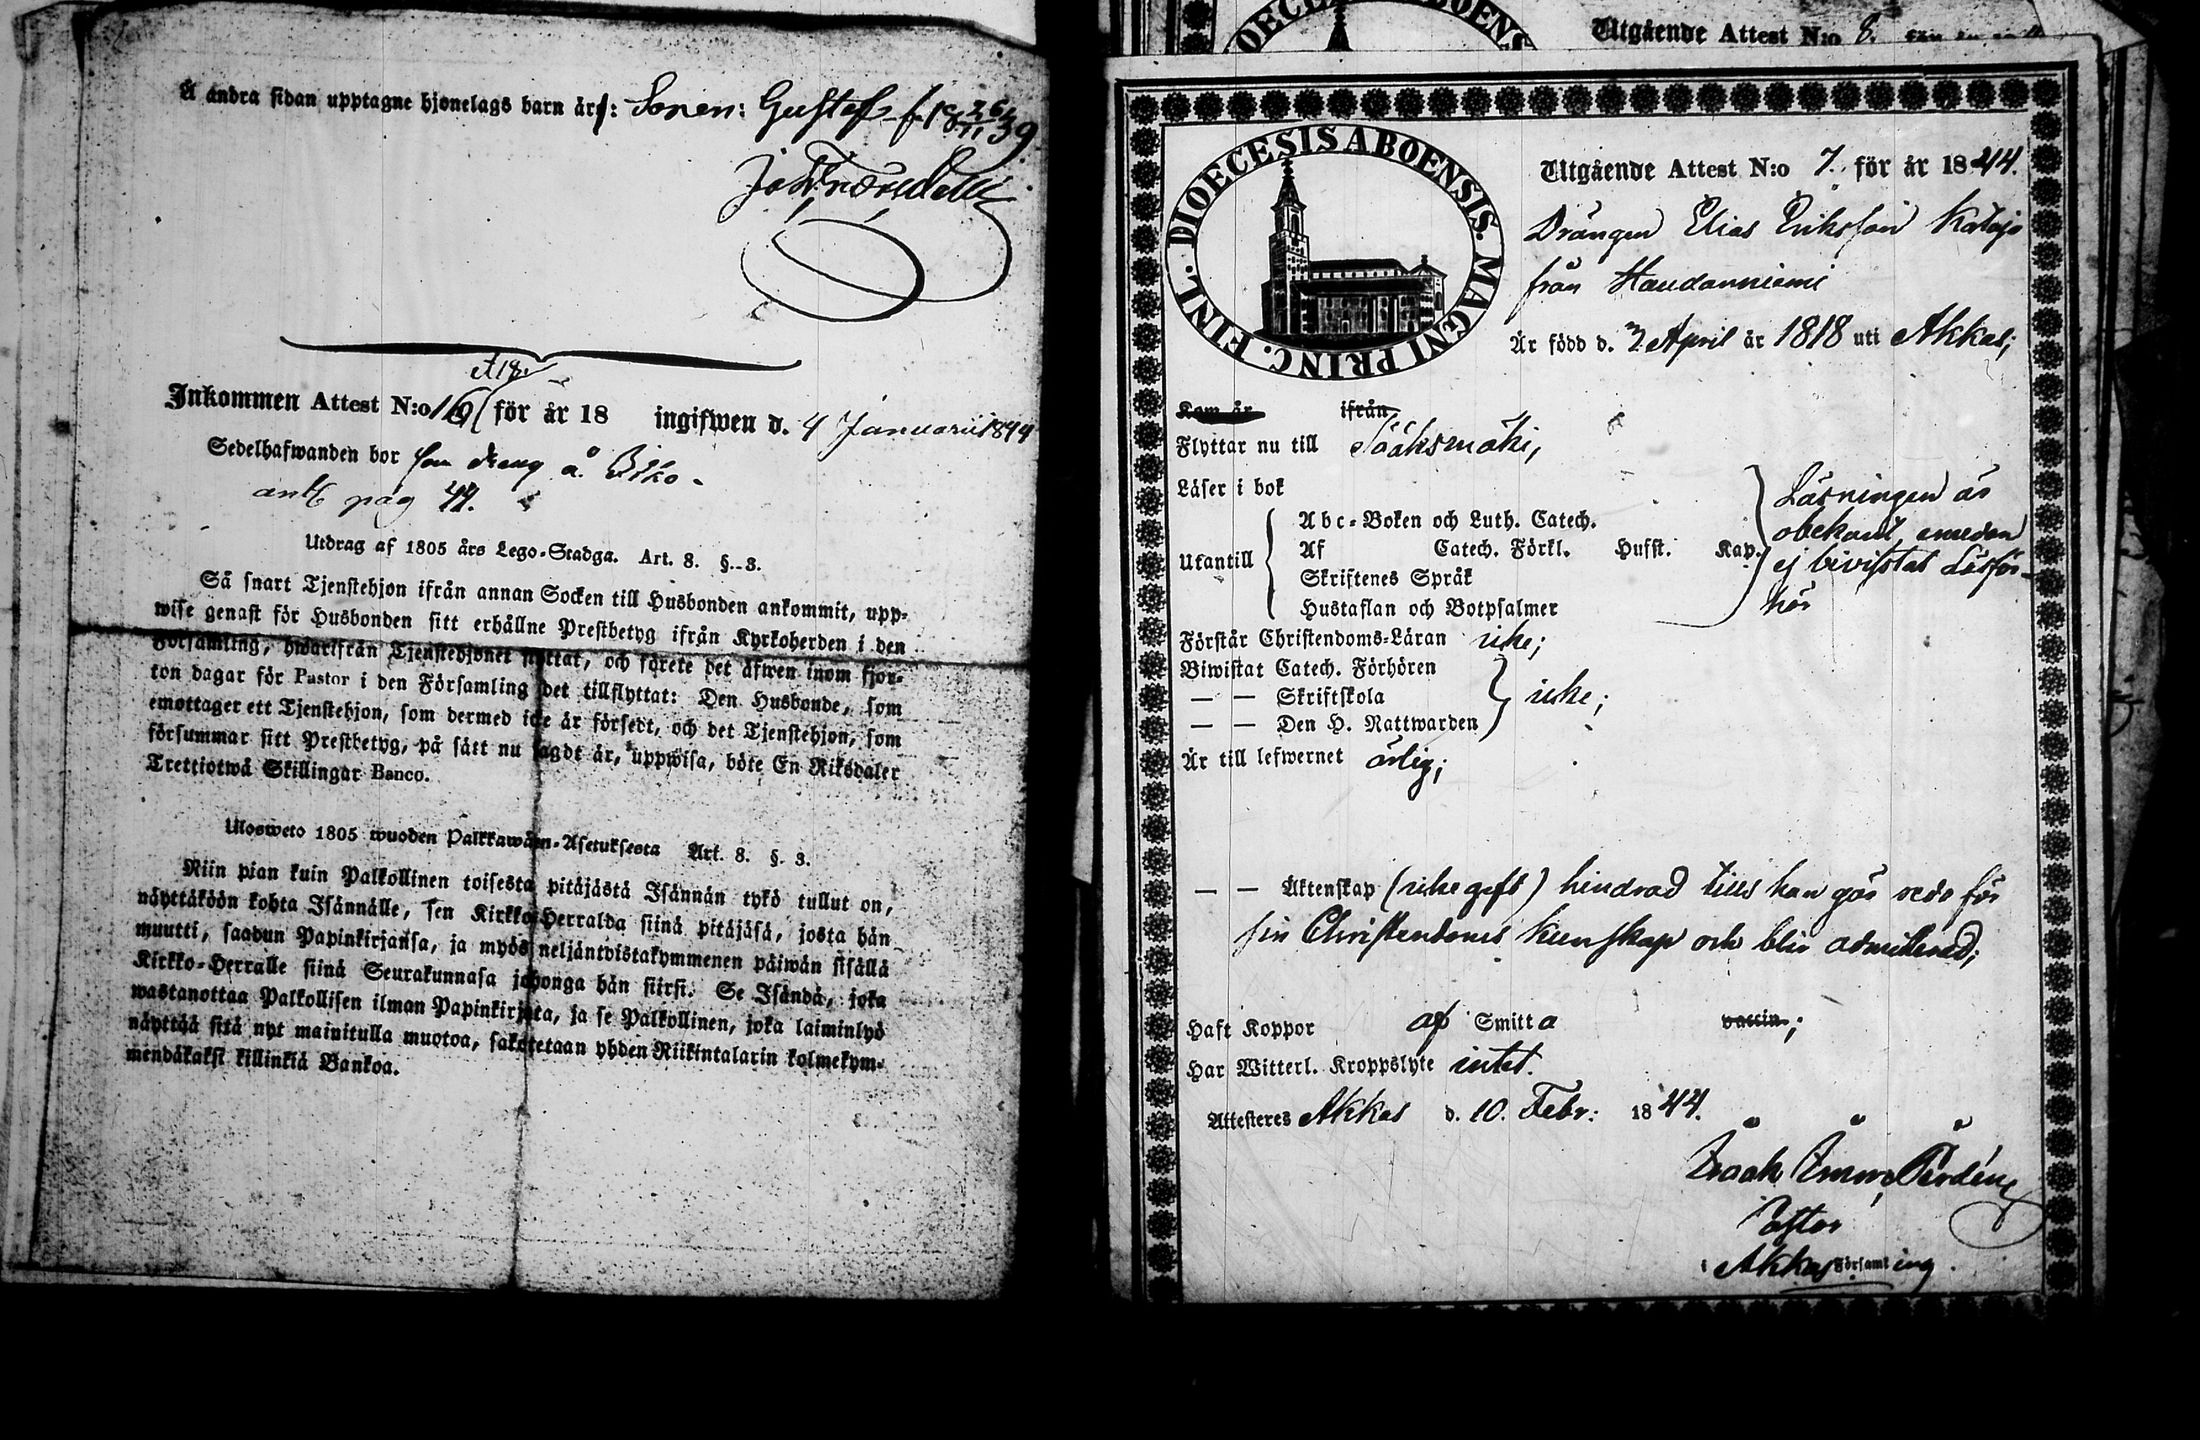 Å andra sidan upptagne hjonelags barn är: Sonen: Gustaf f. 18 26/11 39
Inkommen Attest N:o för år 18 ingifwen d. 4 Januarii 1844
Sedelhafwanden bor som dreng å
pag 44.
Utdrag af 1805 års Lego-Stadga. Art. 8. §. 3.
Så snart Tjenstehjon ifrån annan Socken till Husbonden ankommit, upp-
wise genast för Husbonden sitt erhållne Prestbetyg ifrån Kyrkoherden i den
Församling, hwarifrån Tjenstehjonet flyttat, och förete det äfwen inom fjor-
ton dagar för Pastor i den Församling det tillflyttat: Den Husbonde, som
emottager ett Tjenstehjon, som dermed icke är försedt, och det Tjenstehjon, som
försummar sitt Prestbetyg, på sätt nu sagdt är, uppwisa, böte En Riksdaler
Trettiotwå Skillingar Banco.
Ulosweto 1805 wuoden Palkkawäen-Asetuksesta Art. 8. §. 3.
Niin pian kuin Palkollinen toisesta pitäjästä Isännän tykö tullut on,
näyttäköön kohta Isännälle, sen Kirkko-Herralda siinä pitäjäsä, josta hän
muutti, saadun Papinkirjansa, ja myös neljäntoistakymmenen päiwän sisällä
Kirkko-Herralle siinä Seurakunnasa johonga hän siirsi. Se Isändä, joka
wastanottaa Palkollisen ilman Papinkirjata, ja se Palkollinen, joka laiminlyö
näyttää sitä nyt mainitulla muotoa, sakotetaan yhden Riikintalarin kolmekym-
mendäkaksi killinkiä Bankoa.
Utgående Attest N:o 8. för
DIOECESIS ABOENSIS. MAGNI PRINC. FINL.
Utgående Attest N:o 7. för år 1844.
Drängen Elias Eriksson Kataja
från Haudanniemi
Är född d. 3 April år 1818 uti Akkas;
Kom år ifrån
Flyttar nu till Sääksmäki,
Läser i bok
Utantill
Abc-Boken och Luth. Catech.
Af Catech. Förkl. Husst. Kap.
Skriftenes Språk
Hustaflan och Botpsalmer
Läsningen är
obekant, emedan
ej bivistat Läsför-
hör
Förstår Christendoms-Läran icke;
Biwistat Catech. Förhören
— — Skriftskola icke;
— — Den H. Nattwarden
Är till lefwernet ärlig;
— — Äktenskap (icke gift) hindrad tills han gör redo för
sin Christendoms kunskap och blir admitterad;
Haft Koppor af Smitta vaccin;
Har Witterl. Kroppslyte intet.
Attesteres Akkas d. 10. Febr: 1844.
Pastor
i Akkas Församling.